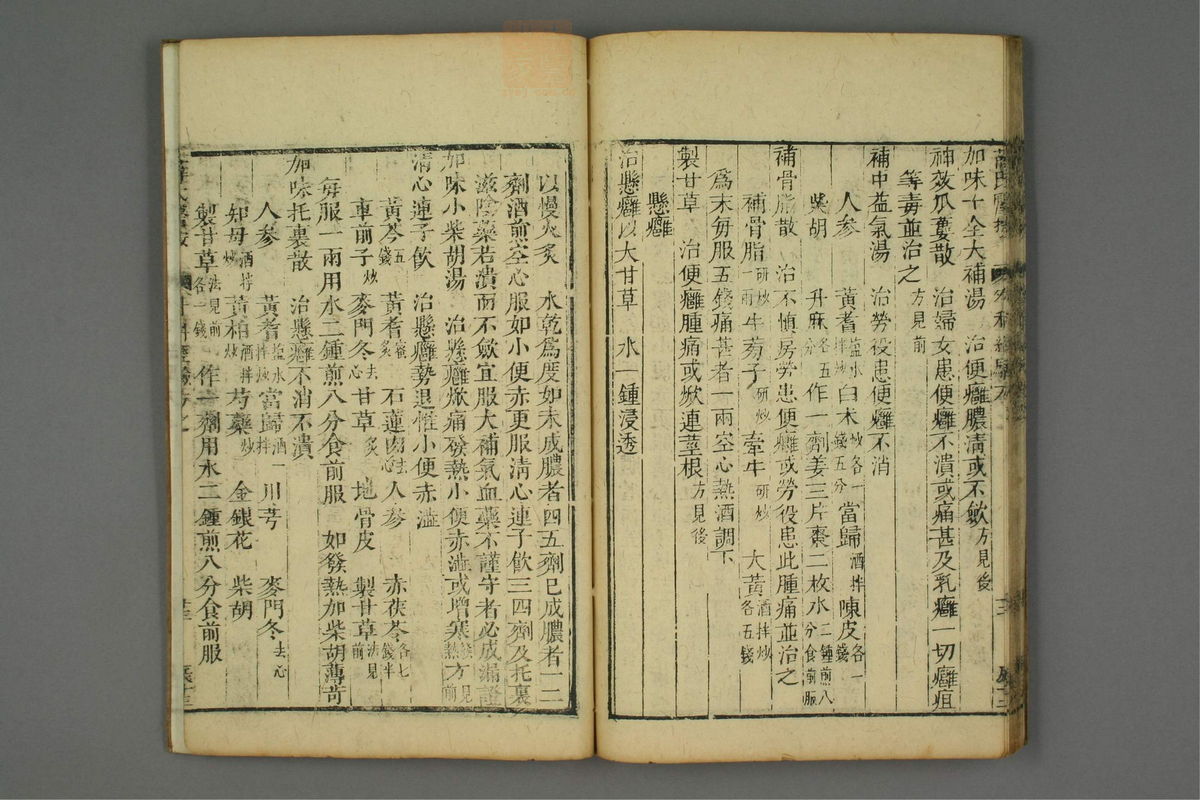 加味十全大補湯　治便癰膿清或不斂方見後
神效瓜蔞散　治婦女患便癰不潰或痛甚及乳癰一切癰疽
等毒並治之方見前
補中益氣湯　治勞役患便癰不消
人參　黃耆鹽水拌炒　白朮炒各一錢五分　當歸酒拌　陳皮各一錢
柴胡　升麻各五分　作一劑姜三片棗二枚水二鍾煎八分食前服
補骨脂散　治不慎房勞患便癰或勞役患此腫痛並治之
補骨脂研炒一兩　牛蒡子研炒　牽牛研炒　大黃酒拌炒各五錢
為末每服五錢痛甚者一兩空心熱酒調下
製甘草　治便癰腫痛或焮連莖根方見後
懸癰
治懸癰以大甘草　水一鍾浸透
以慢火炙　水乾為度如未成膿者四五劑已成膿者一二
劑酒煎空心服如小便赤更服清心連子飲三四劑及托裏
滋陰藥若潰而不斂宜服大補氣血藥不謹守者必成漏證
加味小柴胡湯　治懸癰焮痛發熱小便赤澁或增寒熱方見前
清心連子飲　治懸癰勢退惟小便赤澁
黃芩五錢　黃耆蜜炙　石蓮肉去心　人參　赤茯苓各七錢半
車前子炒　麥門冬去心　甘草炙　地骨皮　製甘草法見前
每服一兩用水二鍾煎八分食前服　如發熱加柴胡薄苛
加味托裏散　治懸癰不消不潰
人參　黃耆鹽水拌炒　當歸酒拌　川芎　麥門冬去心
知母酒拌炒　黃柏酒拌炒　芍藥炒　金銀花　柴胡
製甘草法見前各一錢　作一劑用水二鍾煎八分食前服